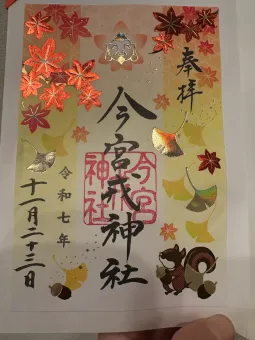 奉拝
今宮戎神社
今宮
神社
令和七年
十一月二十三日